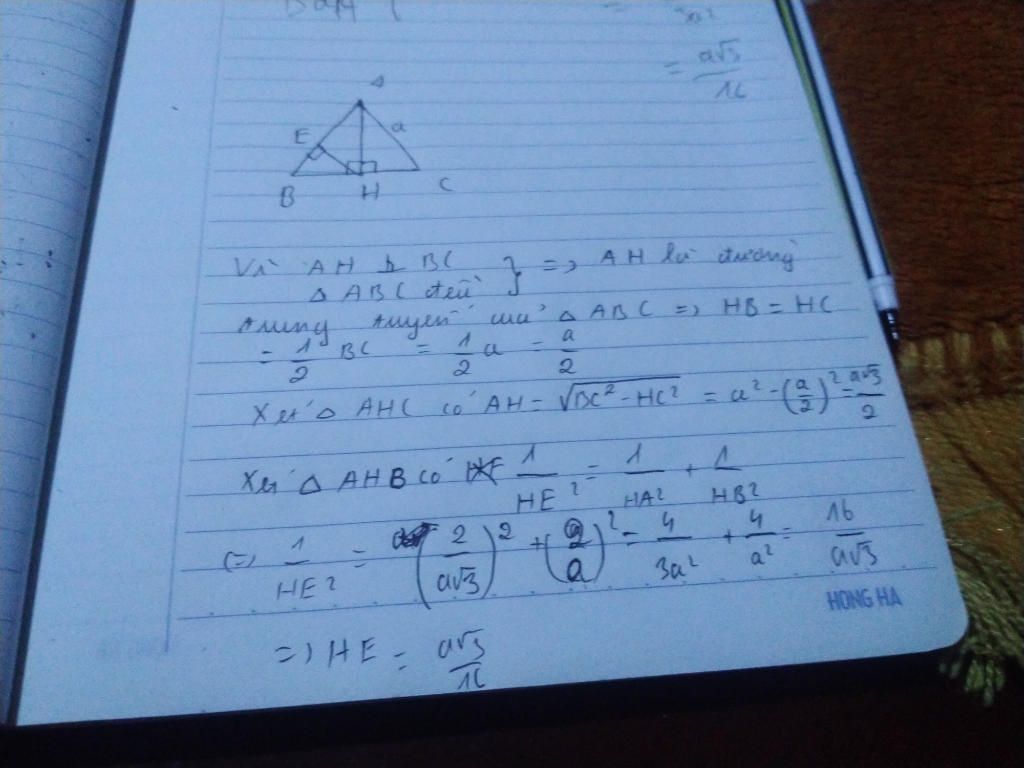 = a√3/16
A
E
a
B
H
C
Vì AH ⊥ BC
Δ ABC đều } => AH là đường
trung tuyến của Δ ABC => HB = HC
= 1/2 BC = 1/2 a = a/2
Xét Δ AHC có AH = √(BC² - HC²) = a² - (a/2)² = a√3/2
Xét Δ AHB có 1/HE² = 1/HA² + 1/HB²
(=) 1/HE² = (2/a√3)² + (2/a)² = 4/3a² + 4/a² = 16/a√3
HONG HA
=> HE = a√3/16